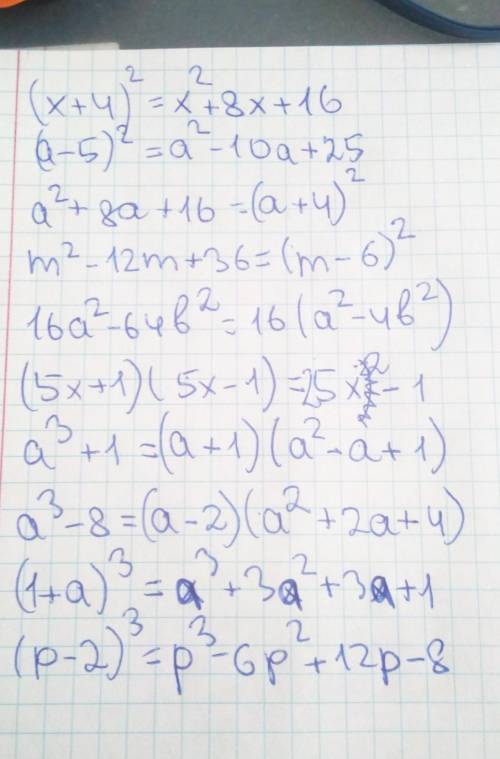 (x+4)² = x²+8x+16
(a-5)² = a²-10a+25
a²+8a+16=(a+4)²
m²-12m+36=(m-6)²
16a²-64в²=16(a²-4в²)
(5x+1)(5x-1)=25x²-1
a³+1=(a+1)(a²-a+1)
a³-8=(a-2)(a²+2a+4)
(1+a)³=a³+3a²+3a+1
(p-2)³=p³-6p²+12p-8